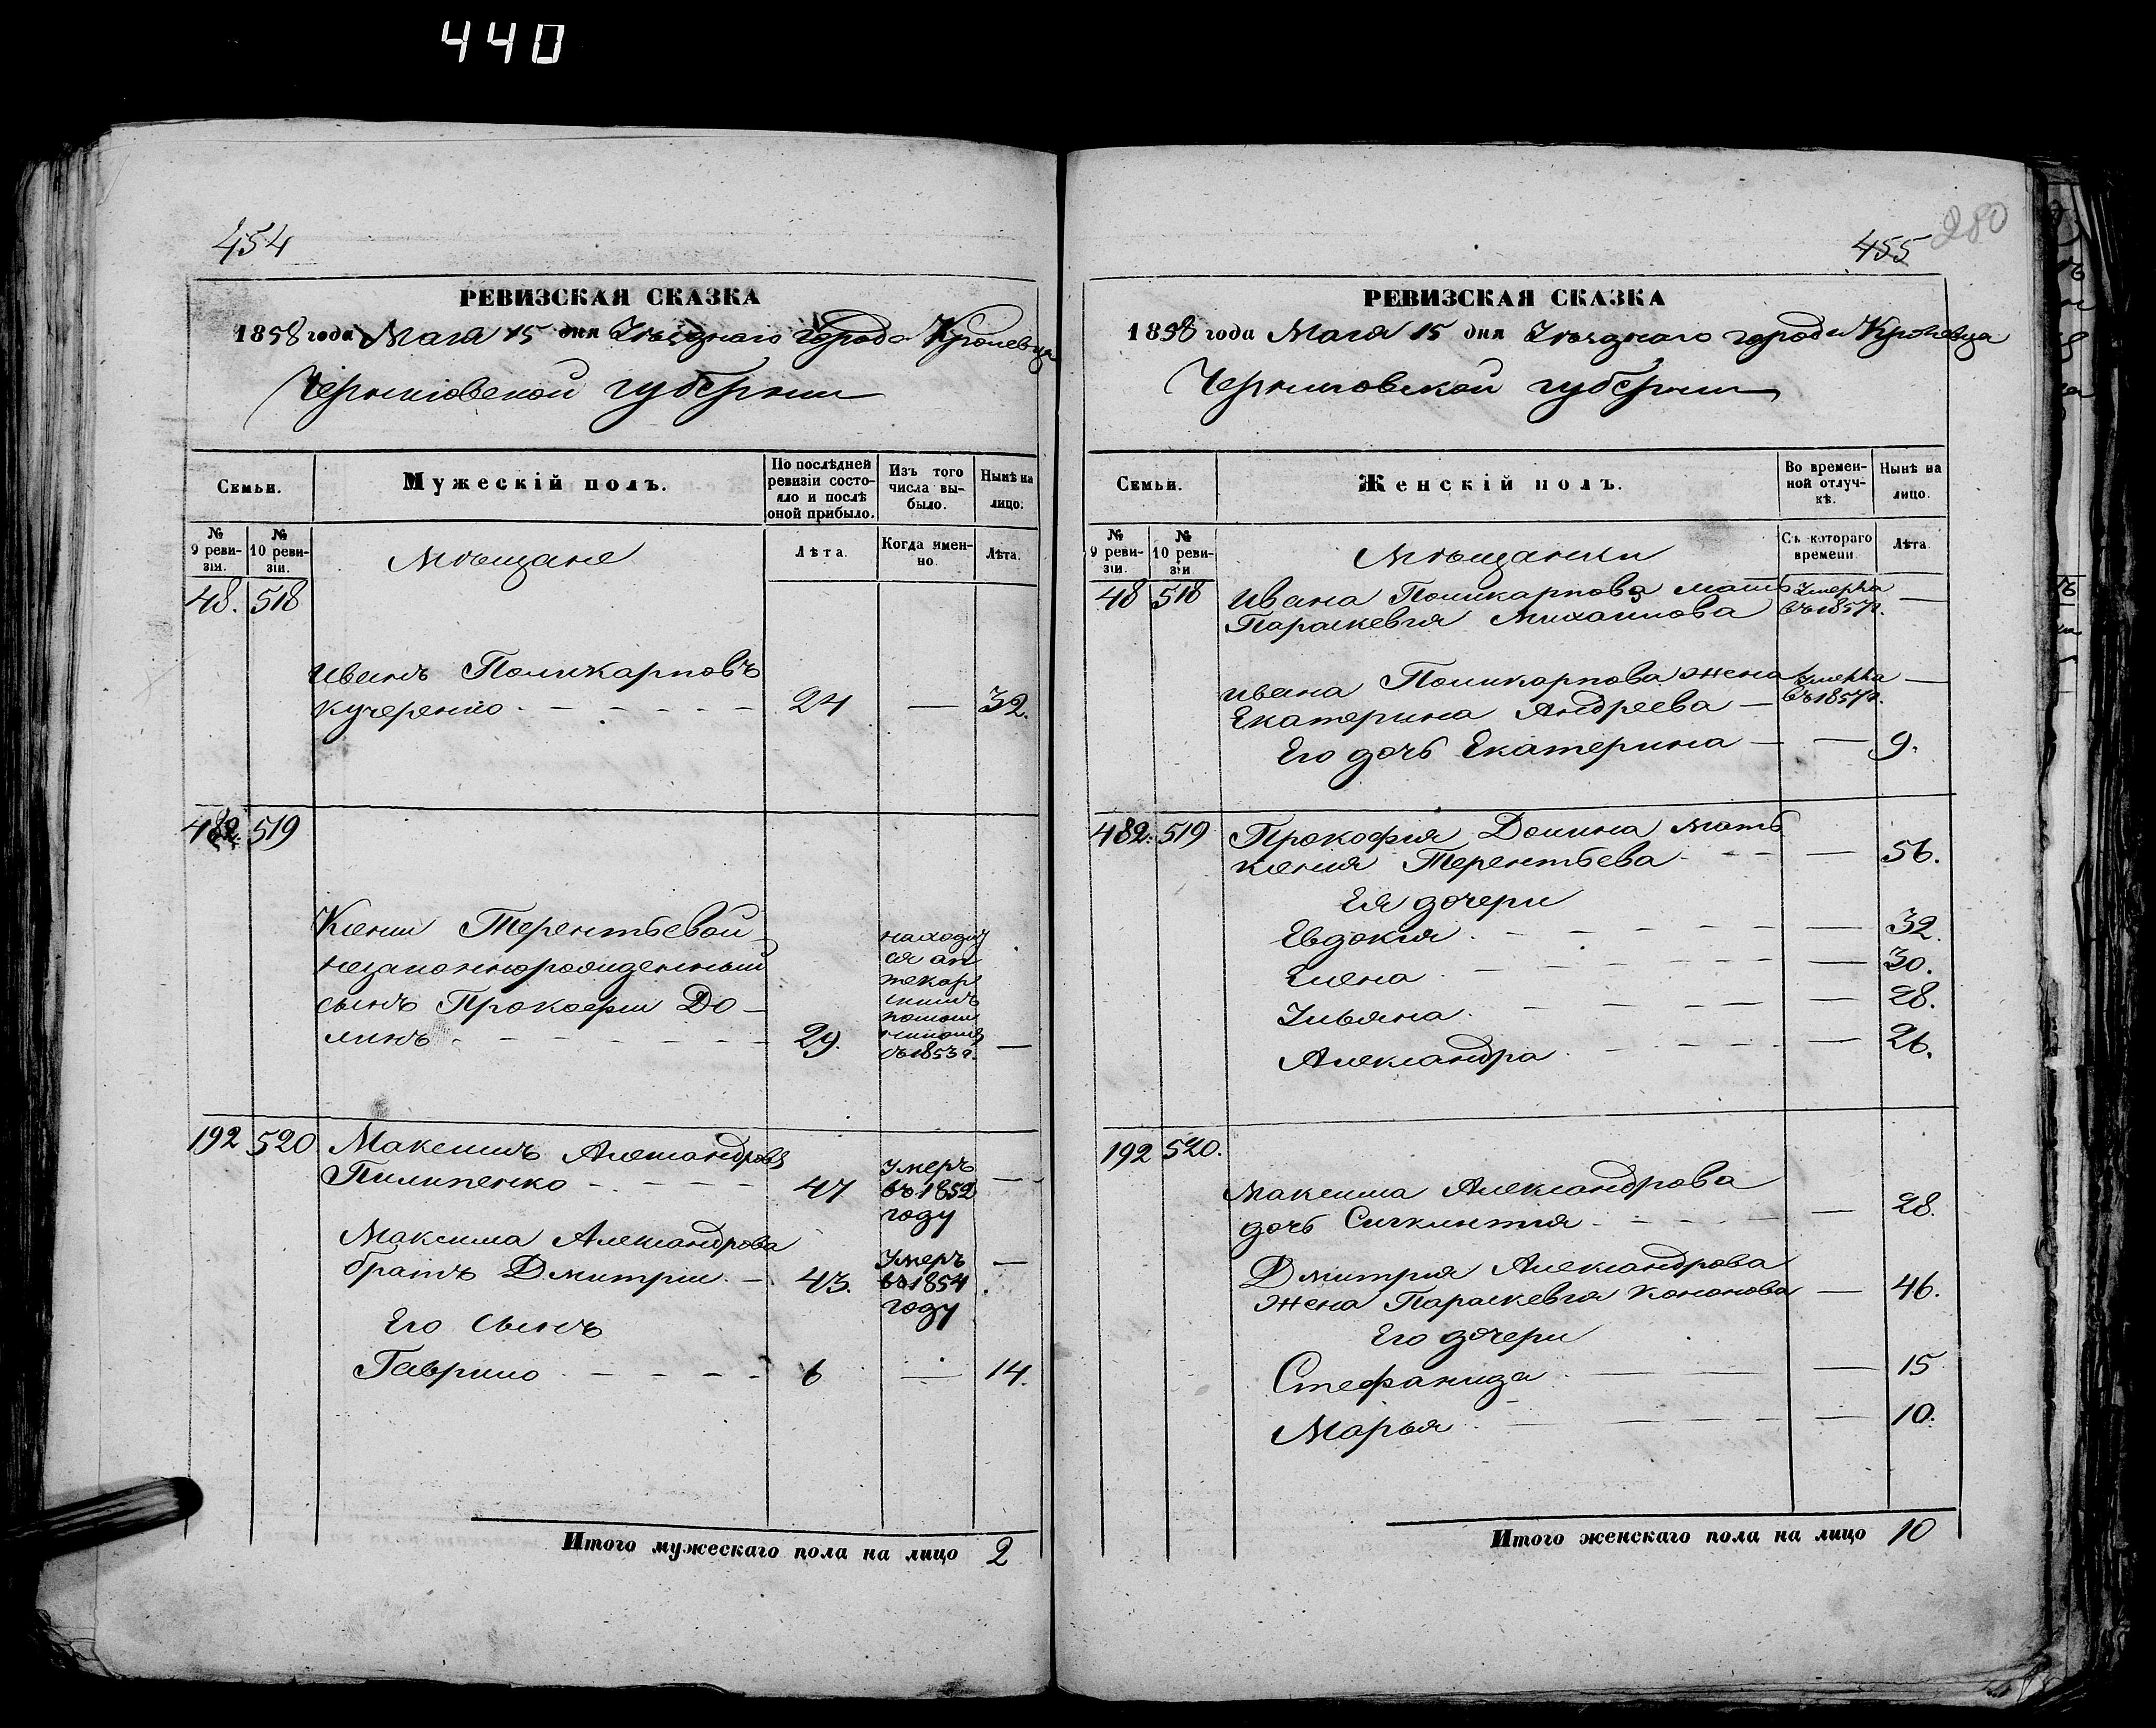 440
454
РЕВИЗСКАЯ СКАЗКА
1858 года Мая 15 дня Уѣзднаго города Кролевца
Черниговской губернии
Семьи.
Мужескій полъ.
По послѣдней ревизіи состояло и послѣ оной прибыло.
Изъ того числа выбыло.
Нынѣ на лицо.
№ 9 ревизіи.
№ 10 ревизіи.
Мѣщане
Лѣта.
Когда именно.
Лѣта.
48. 518
Иванъ Поликарповъ
Кучеренко 24 — 32.
482. 519
Ксении Терентьевой
незаконнорожденный
сынъ Прокофий До-
линъ 29. —
находит
ся ап
текар
скимъ
въ 1853 г.
192 520 Максимъ Александровъ
Пилипенко 47 Умеръ въ 1852 году —
Максима Александрова
братъ Дмитрий — 43. Умеръ въ 1854 году —
Его сынъ
Гаврило 6 — 14.
Итого мужескаго пола на лицо 2
455
280
РЕВИЗСКАЯ СКАЗКА
1858 года Мая 15 дня Уѣзднаго города Кролевца
Черниговской губернии
Семьи.
Женскій полъ.
Во временной отлучкѣ.
Нынѣ на лицо.
№ 9 ревизіи.
№ 10 ревизіи.
Мѣщанки
Съ котораго времени.
Лѣта.
48 518 Ивана Поликарпова мать Умерла —
Параскевия Михайлова въ 1857 г.
Ивана Поликарпова жена Умерла —
Екатерина Андреева — въ 1857 г.
Его дочь Екатерина — — 9.
482. 519 Прокофия Долина мать
Ксения Терентьева — 56.
Ея дочери
Евдокия — 32.
Елена — 30.
Ульяна — 28.
Александра — 26.
192 520.
Максима Александрова
дочь Сигклития — 28.
Дмитрия Александрова
жена Параскевия Кононова — 46.
Его дочери
Стефанида — 15
Марья — 10.
Итого женскаго пола на лицо 10